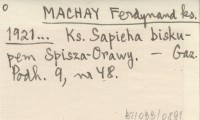 MACHAY Ferdynand ks.
1921... Ks. Sapieha bisku-
pem Spisza-Orawy. — Gaz.
Podh. 9, nr 48.